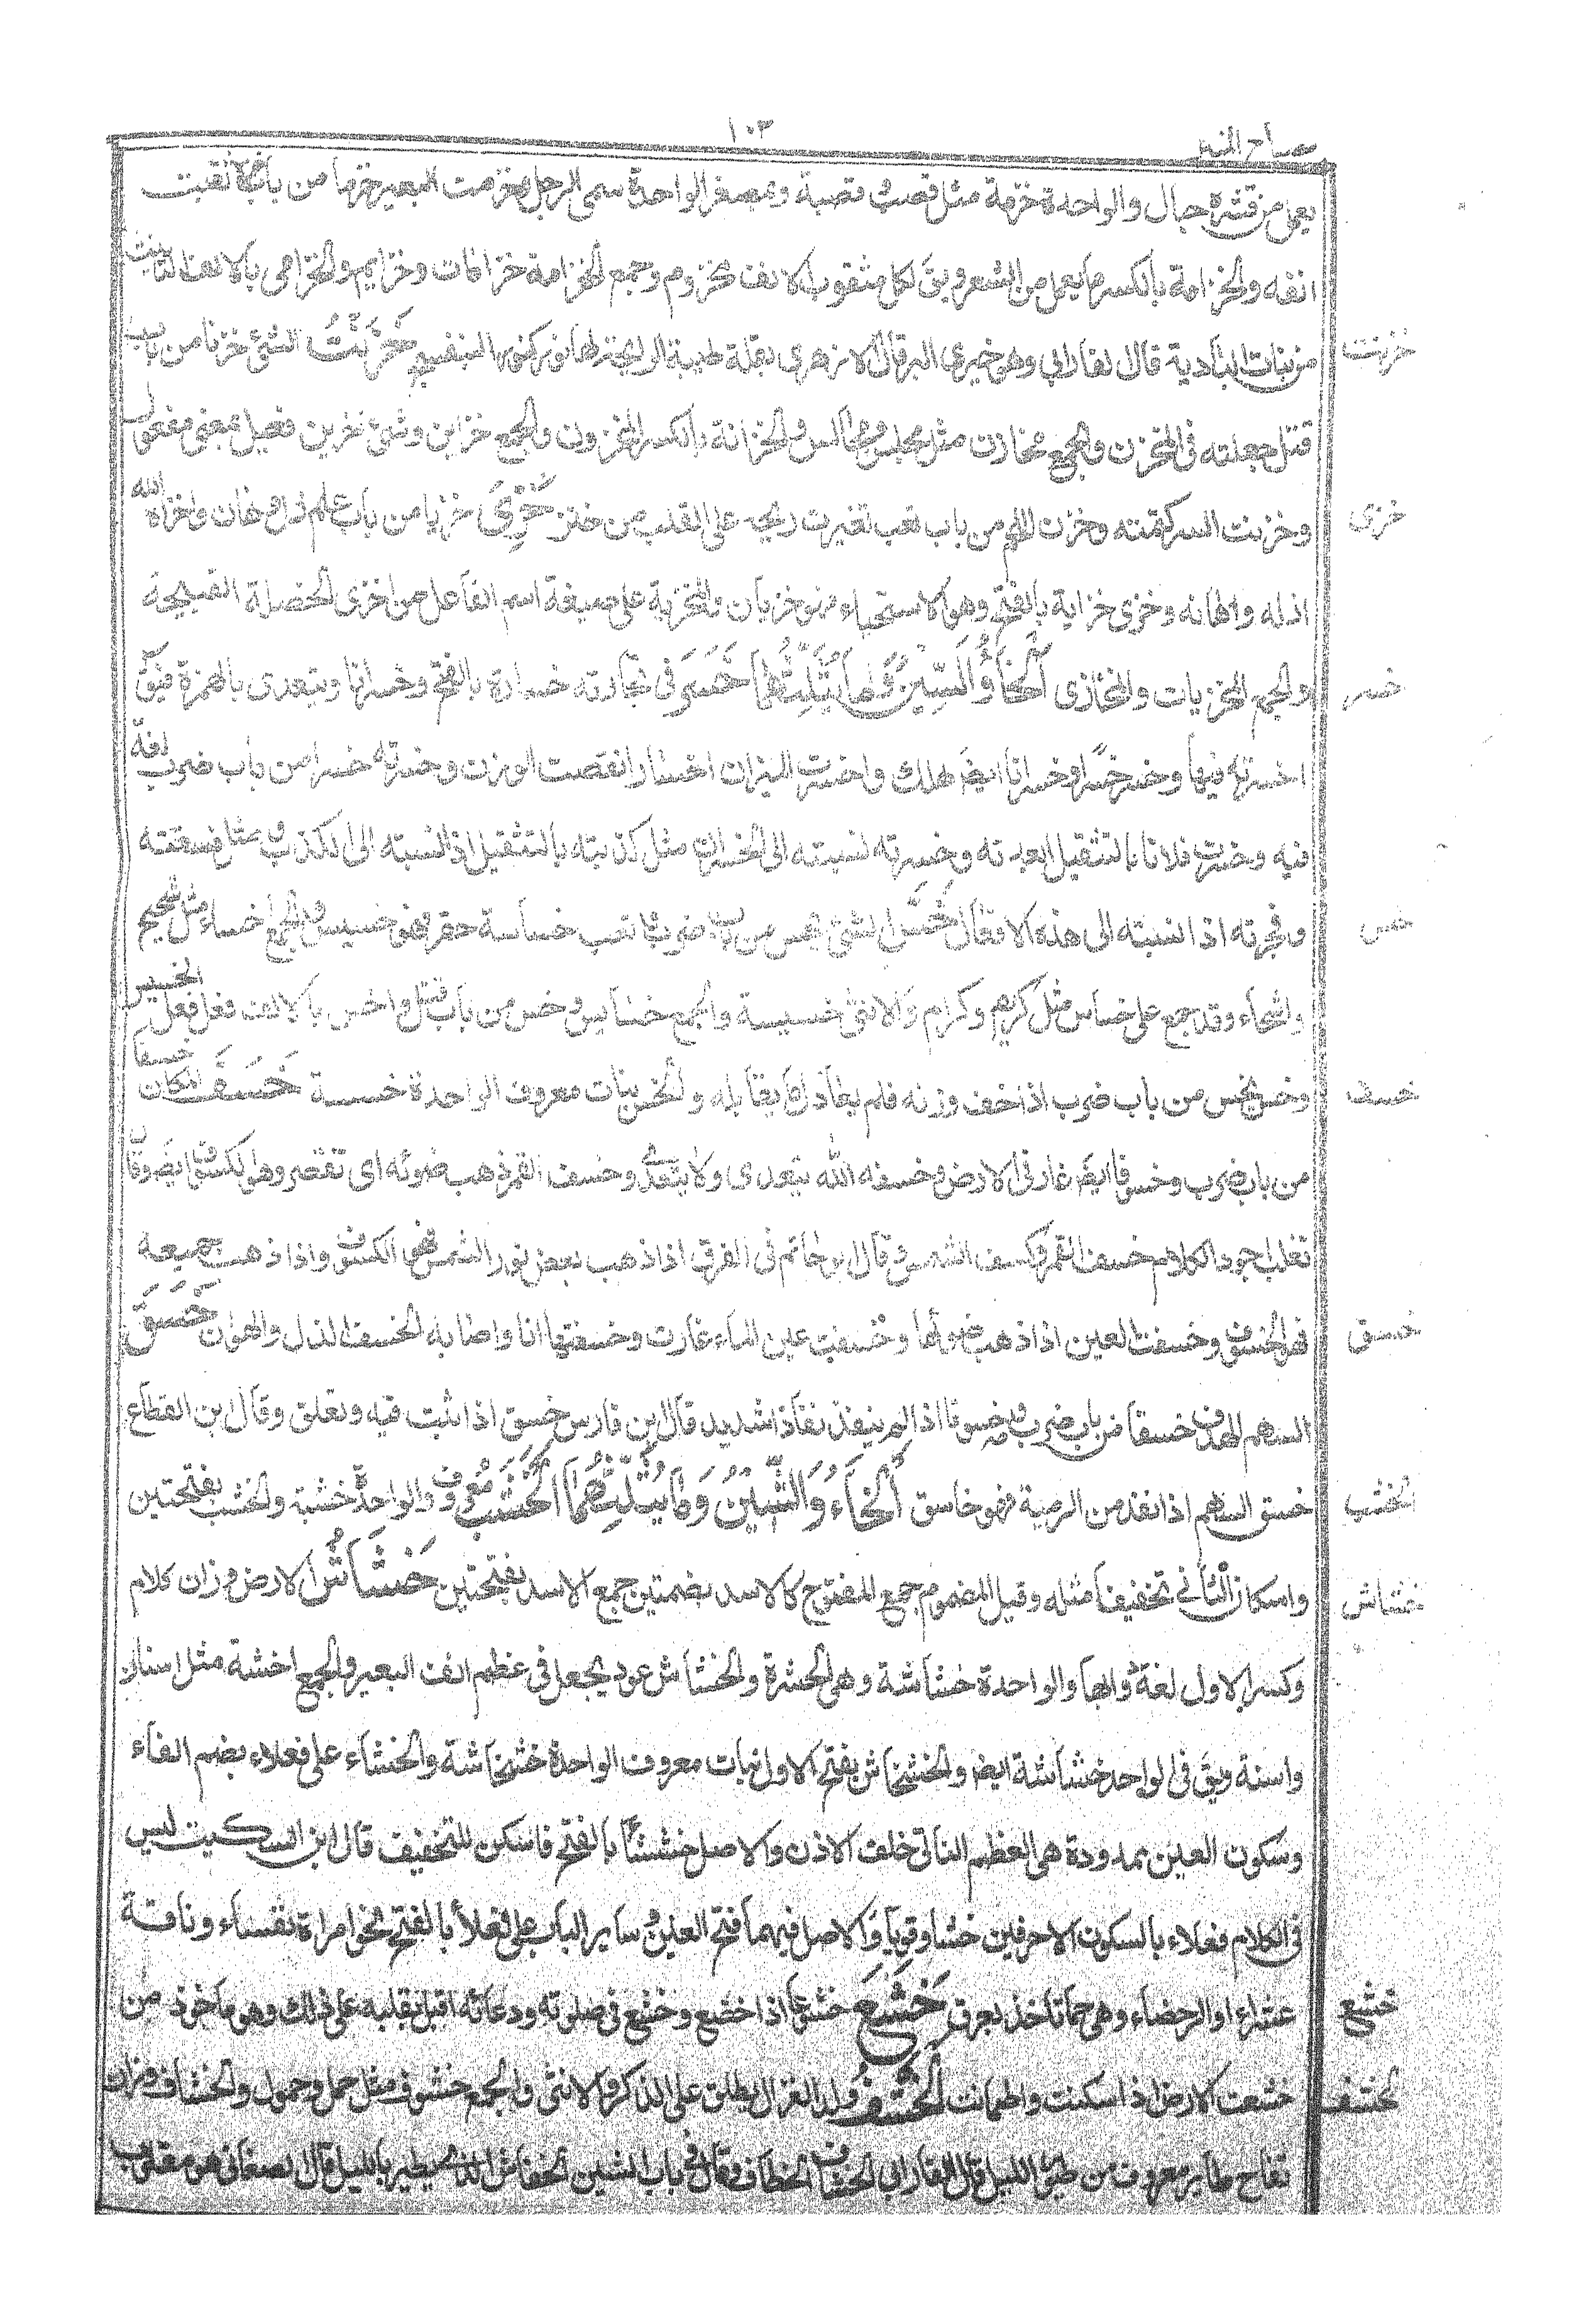 مصباح المنير
١٠٣
يعمل من قشره حبال والواحدة خزمة مثل قصب وقصبة وبمصغر الواحدة سمى الرجل وخزمت البعير خزما من باب ثقبت
انفه والخزامة بالكسر ما يعمل من الشعر ويق لكل مثقوب الانف مخزوم وجمع الخزامة خزامات وخزايم والخزامى بالالف التانيث
خزنت
من نبات البادية قال الفارابي وهو خيرى البر وقال الازهرى بقلة طيبة الرايحة لها نور كنور البنفسج خَزَنْتُ الشئ خزنا من باب
قتل جعلته فى المخزن والجمع مخازن مثل مجلس ومجالس والخزانة بالكسر المخزون والجمع خزاين وشئ خزين فعيل بمعنى مفعول
خزى
وخزنت السر كتمته وخزن اللحم من باب تعب تغيرت ريحه على القلب من خنز خَزِىَ خزيا من باب علم ذل وهان واخزاه الله
اذله واهانه وخزى خزاية بالفتح وهو الاستحياء فهو خزيان والمخزية على صيغة اسم الفاعل من اخزى الخصلة القبيحة
خسر
والجمع المخزيات والمخازى الْخَاءُ وَالسِّينُ وَمَا يُثَلِّثُهُمَا خَسَرَ فى تجارته خسارة بالفتح وخسرا وخسرانا ويتعدى بالهمزة فيق
اخسرته فيها وخسر خسرا وخسرانا ايض هلك واخسرت الميزان اخسارا نقصت الوزن وخسرته خسرا من باب ضرب لغة
فيه وخسرت فلانا بالتثقيل ابعدته وخسرته نسبته الى الخسران مثل كذبته بالتثقيل اذا نسبته الى الكذب ومثله فسقته
خس
وفجرته اذا نسبته الى هذه الافعال خَسَّ الشئ يخس من باب ضرب وتعب خساسة حقر فهو خسيس والجمع اخساء مثل شحيح
واشحاء وقد جمع على خساس مثل كريم وكرام والانثى خسيسة والجمع خسايس وخس من باب قتل واخس بالالف فعل فعل الخسيس
خسف
وخس يخس من باب ضرب اذا خف وزنه فلم يعادل ما يقابله والخس نبات معروف الواحدة خسة خَسَفَ المكان خسفا
من باب ضرب وخسوفا ايض غار فى الارض وخسفه الله يتعدى ولا يتعدى وخسف القمر ذهب ضوئه اى نقص وهو الكسوف ايض وقال
ثعلب اجود الكلام خسف القمر وكسف الشمس وقال ابو حاتم فى الفرق اذا ذهب بعض نور الشمس فهو الكسوف واذا ذهب جميعه
خسق
فهو الخسوف وخسفت العين اذا ذهب ضوئها وخسفت عين الماء غارت وخسفتها انا واصابه الخسف الذل والهوان خَسَقَ
السهم الهدف خسقا من باب ضرب وخسوقا اذا لم ينفذ نفاذا شديدا قال ابن فارس خسق اذا ثبت فيه وتعلق وقال ابن القطاع
الخشب
خسق السهم اذا نفذ من الرمية فهو خاسق اَلْخَاءُ وَالشِّينُ وَمَا يُثَلِّثُهُمَا اَلْخَشَبُ معروف والواحدة خشبة والخشب بفتحتين
خشاش
واسكان الثانى تخفيفا مثله وقيل المضموم جمع المفتوح كالاسد بضمتين جمع الاسد بفتحتين خَشَاشُ الارض وزان كلام
وكسر الاول لغة والواحدة خشاشة وهى الحشرة والخشاش عود يجعل فى عظم انف البعير والجمع اخشة مثل اسنان
واسنة ويق فى الواحد خشاشة ايض والخشخاش بفتح الاول نبات معروف الواحدة خشخاشة والخشاء على فعلاء بضم الفاء
وسكون العين ممدودة هى العظم الناتى خلف الاذن والاصل خششاء بالفتح فاسكن للتخفيف قال ابن السكيت ليس
فى الكلام فعلاء بالسكون الا حرفين خشاء وقوباء والاصل فيهما فتح العين وساير الباب على فعلاء بالفتح نحو امراة نفساء وناقة
خشع
عشراء والرحضاء وهى حمى تاخذ بعرق خَشَعَ خشوعا اذا خضع وخشع فى صلوته ودعائه اقبل بقلبه على ذلك وهو ماخوذ من
الخشف
خشعت الارض اذا سكنت واطمانت الْخِشْفُ ولد الغزال يطلق على الذكر والانثى والجمع خشوف مثل حمل وحمول والخشاف وزان
تفاح طاير معروف من طير الليل قال الفارابى الخشاف الخطاف وقال فى باب الشين الخفاش الذى يطير بالليل قال الصغانى هو مقلوب